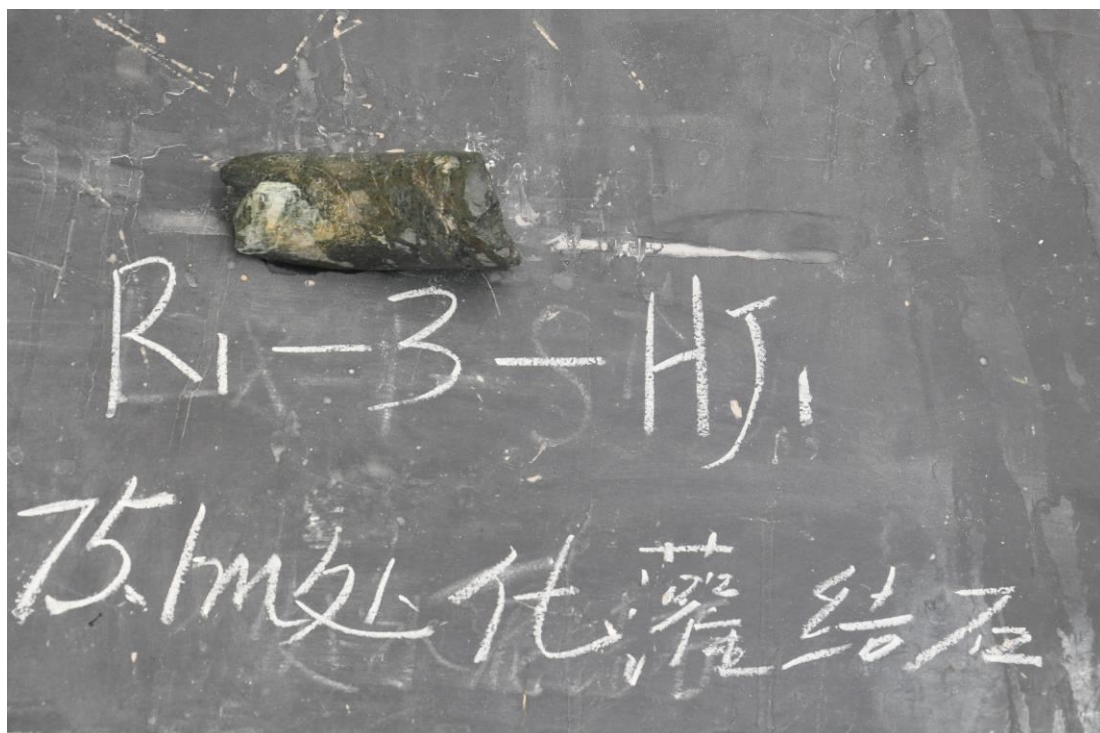 R1-3-HJ1
75.1m处化灌结石